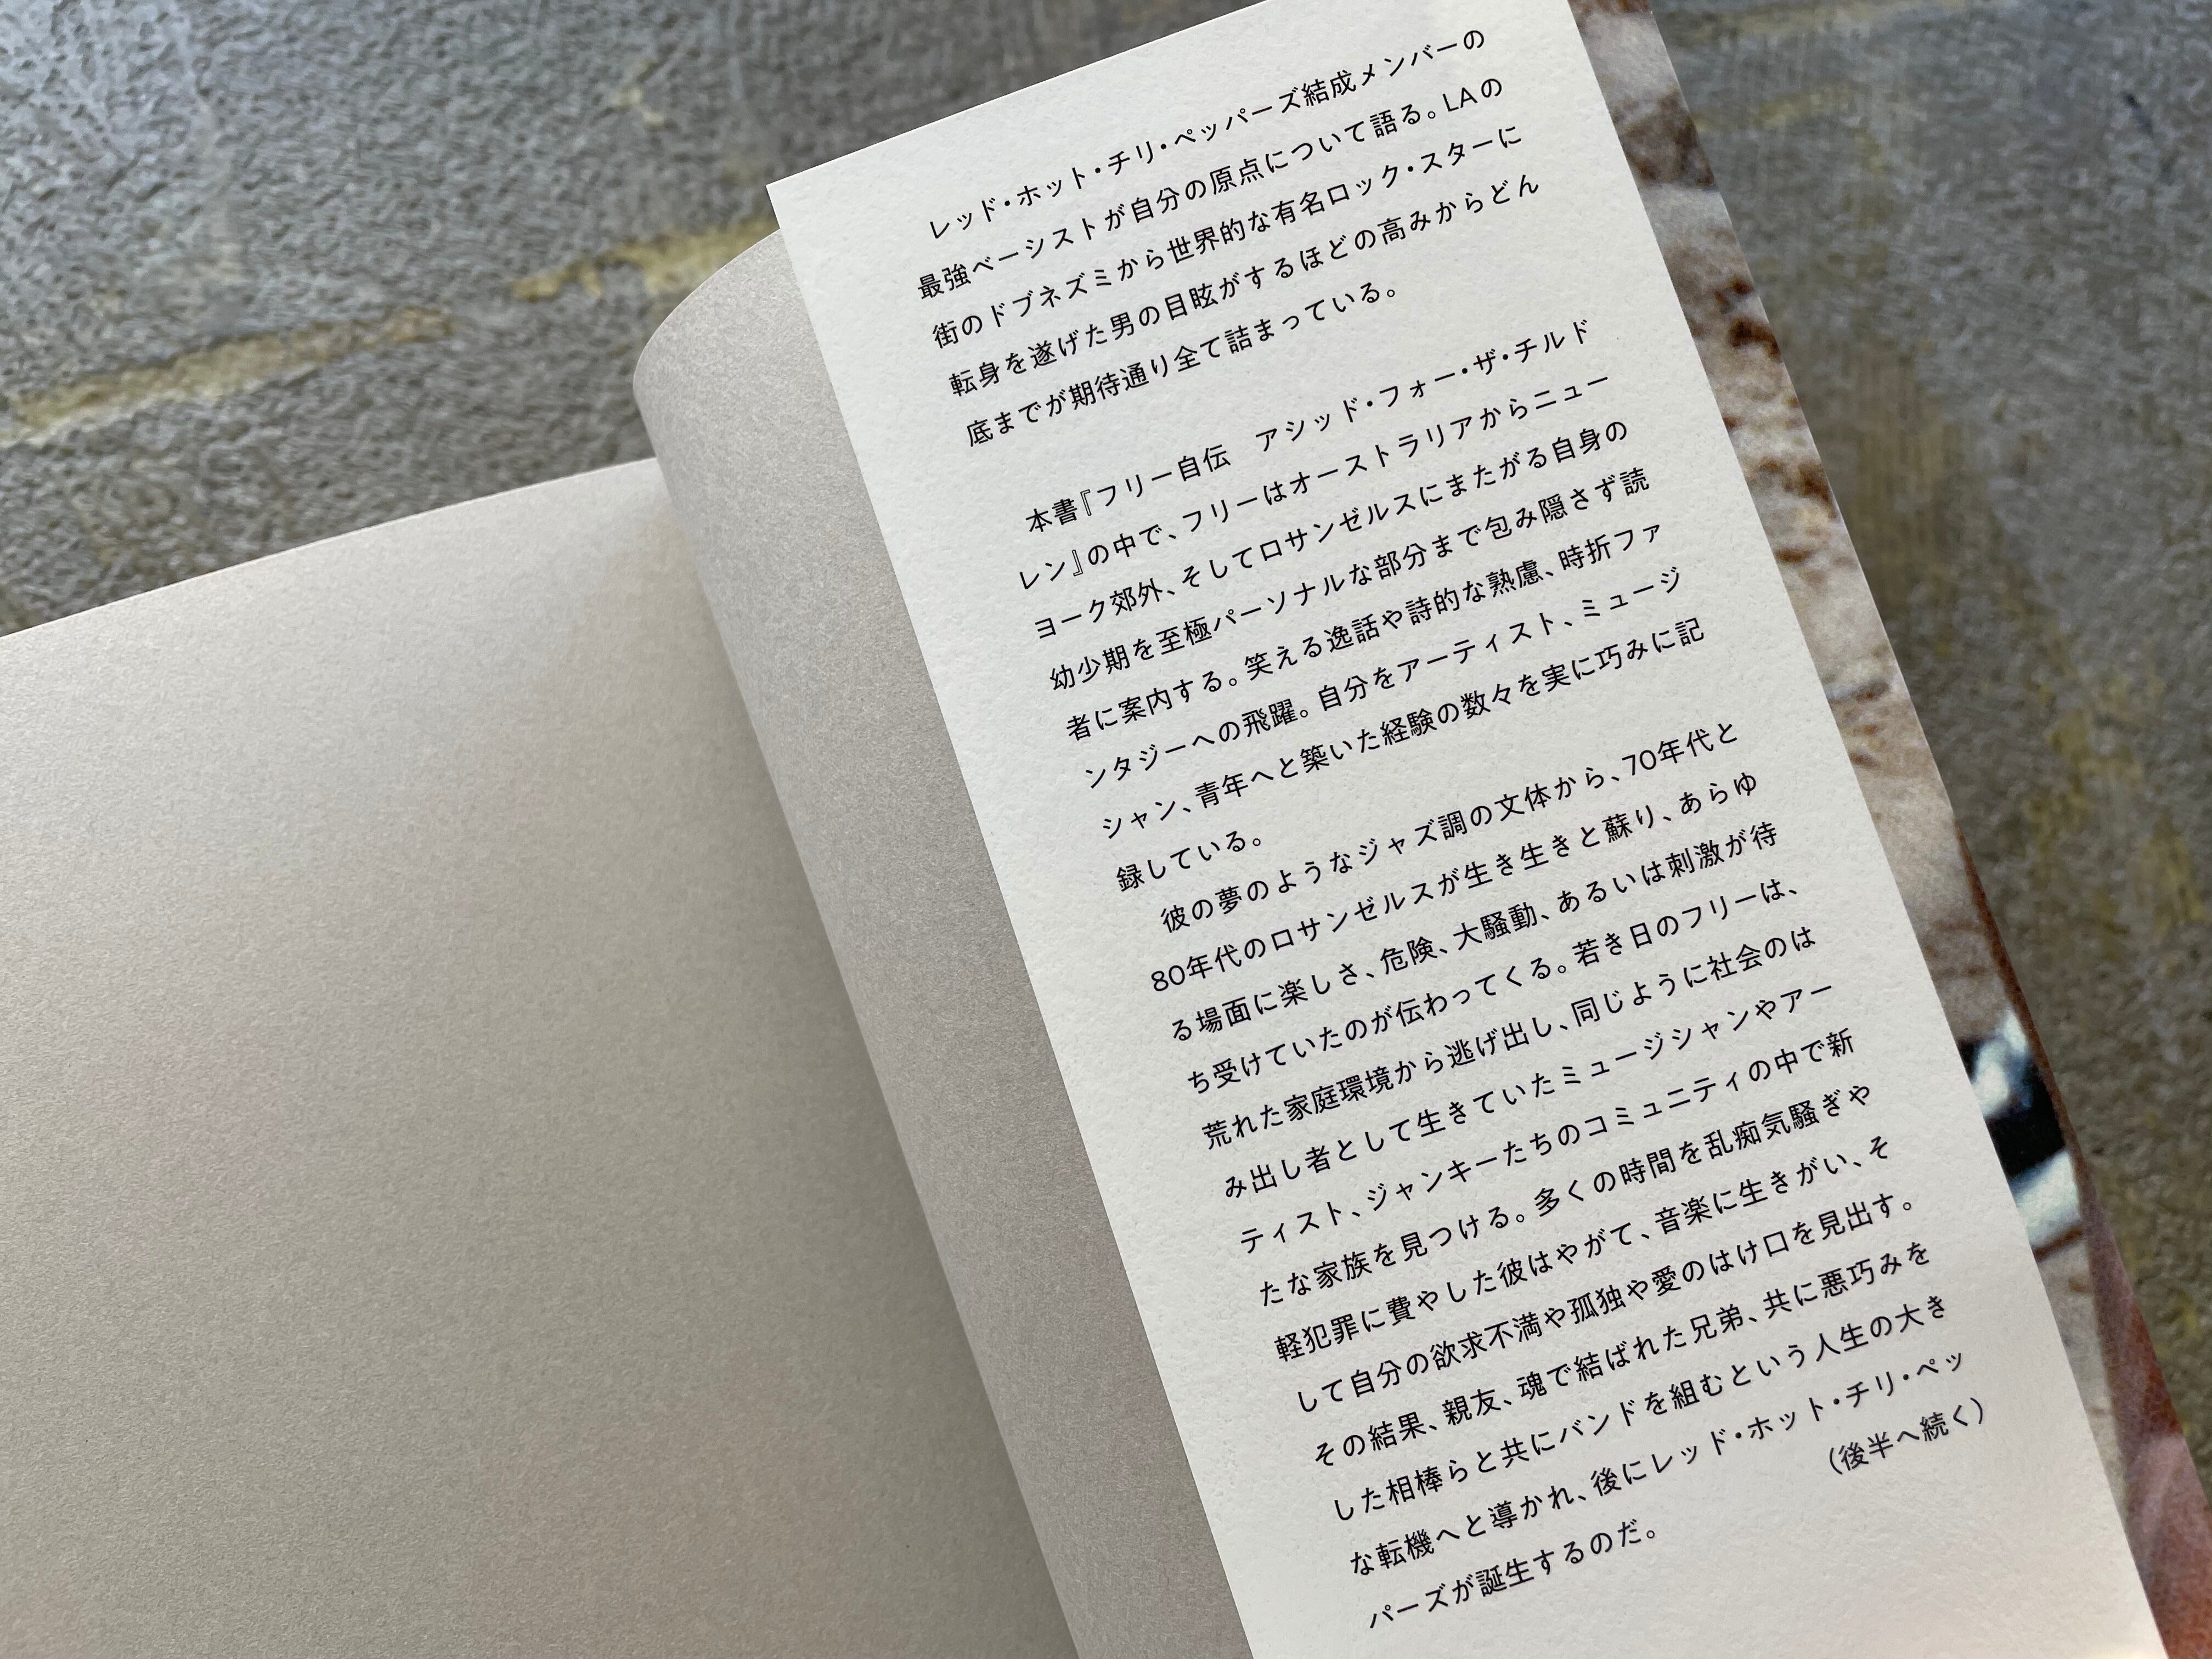 レッド・ホット・チリ・ペッパーズ結成メンバーの
最強ベーシストが自分の原点について語る。LAの
街のドブネズミから世界的な有名ロック・スターに
転身を遂げた男の目眩がするほどの高みからどん
底までが期待通り全て詰まっている。
本書『フリー自伝　アシッド・フォー・ザ・チルド
レン』の中で、フリーはオーストラリアからニュー
ヨーク郊外、そしてロサンゼルスにまたがる自身の
幼少期を至極パーソナルな部分まで包み隠さず読
者に案内する。笑える逸話や詩的な熟慮、時折ファ
ンタジーへの飛躍。自分をアーティスト、ミュージ
シャン、青年へと築いた経験の数々を実に巧みに記
録している。
彼の夢のようなジャズ調の文体から、70年代と
80年代のロサンゼルスが生き生きと蘇り、あらゆ
る場面に楽しさ、危険、大騒動、あるいは刺激が待
ち受けていたのが伝わってくる。若き日のフリーは、
荒れた家庭環境から逃げ出し、同じように社会のは
み出し者として生きていたミュージシャンやアー
ティスト、ジャンキーたちのコミュニティの中で新
たな家族を見つける。多くの時間を乱痴気騒ぎや
軽犯罪に費やした彼はやがて、音楽に生きがい、そ
して自分の欲求不満や孤独や愛のはけ口を見出す。
その結果、親友、魂で結ばれた兄弟、共に悪巧みを
した相棒らと共にバンドを組むという人生の大き
な転機へと導かれ、後にレッド・ホット・チリ・ペッ
パーズが誕生するのだ。
（後半へ続く）